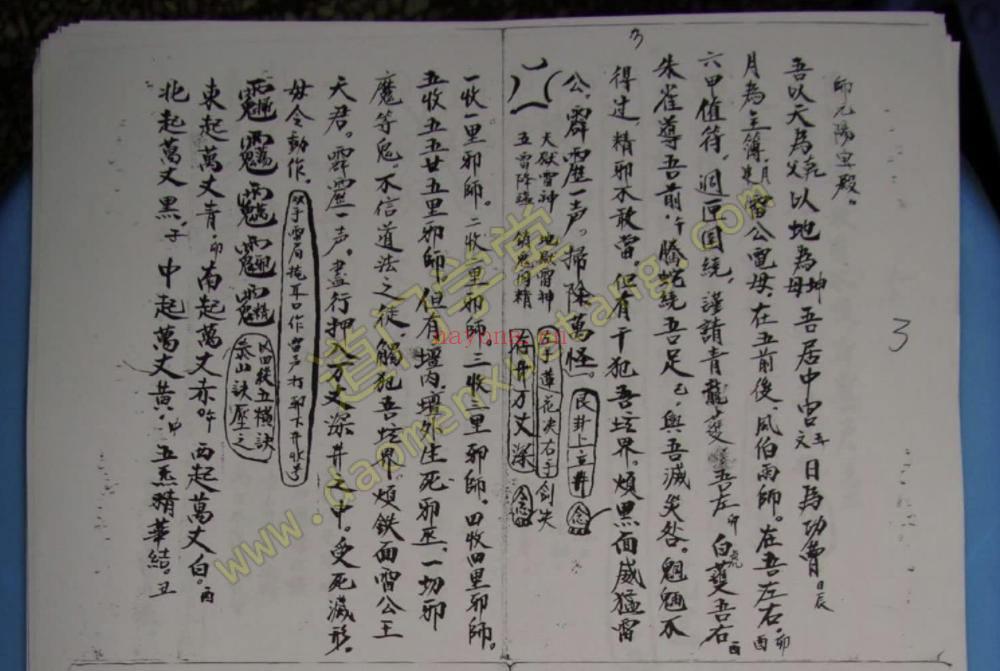 3
3
印九陽宝殿。
吾以天為父乾以地為母坤吾居中宮日為功曹日辰
月為主簿月雷公電母。在吾前後。風伯雨師。在吾左右卯酉
六甲值符。洞匝囲繞。謹請青龍蔓吾左卯白蔓吾右酉
朱雀導吾前午騰蛇繞吾足已與吾滅災咎。魍魎不
得过精邪不敢當。但有干犯吾坛界。煩黑面威猛雷
公霹靂一声。掃除萬怪。艮卦上立井 念
天獄雷神 地獄雷神 左手蓮花尖右手剑尖
五雷降臨 吾井万丈深 念
一收一里邪师。二收二里邪师。三收三里邪师。四收四里邪師。
五收五五廿五里邪师但有壇內壇外生死邪巫。一切邪
魔等鬼。不信道法之徒。觸犯吾坛界煩鉄面雷公王
天君。霹靂一声。盡行押入万丈深井之中。受死滅形。
毋令動作。双手雷局掩耳口作雷声打邪下井
以四縱五橫訣 泰山訣壓之
東起萬丈青卯南起萬丈赤午西起萬丈白。酉
北起萬丈黑。子中起萬丈黄。中五炁精華結。丑
道门学堂
www.daomenxuetang.com
hayona.cn